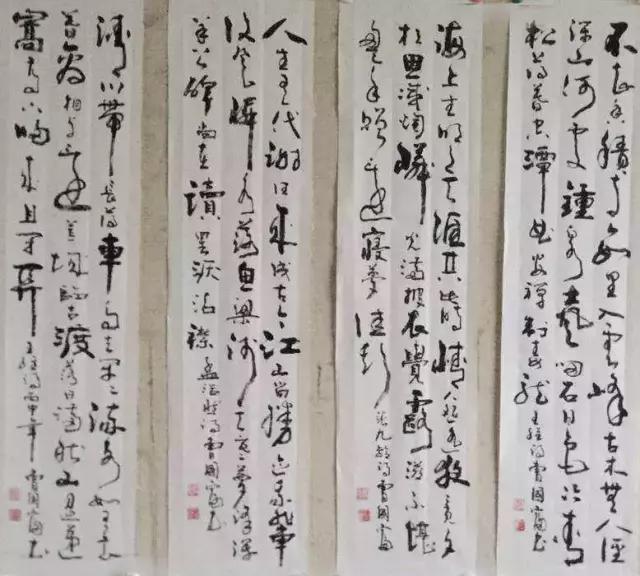 不知香積寺數里入雲峰古木無人徑
深山何處鐘泉聲咽危石日色冷青
松薄暮空潭曲安禪制毒龍王維詩曹國富書
海上生明月天涯共此時情人怨遙夜竟夕
相思滅燭憐光滿披衣覺露滋不堪
盈手贈還寢夢佳期張九齡詩曹國富
人生有代謝往來成古今江山留勝跡我輩
復登臨水落魚梁淺天寒夢澤深
羊公碑尚在讀罷淚沾襟孟浩然詩曹國富書
清川帶長薄車馬去閑閑流水如有意
暮禽相與還荒城臨古渡落日滿秋山迢遞
嵩高下歸來且閉關王維詩丙申年曹國富書